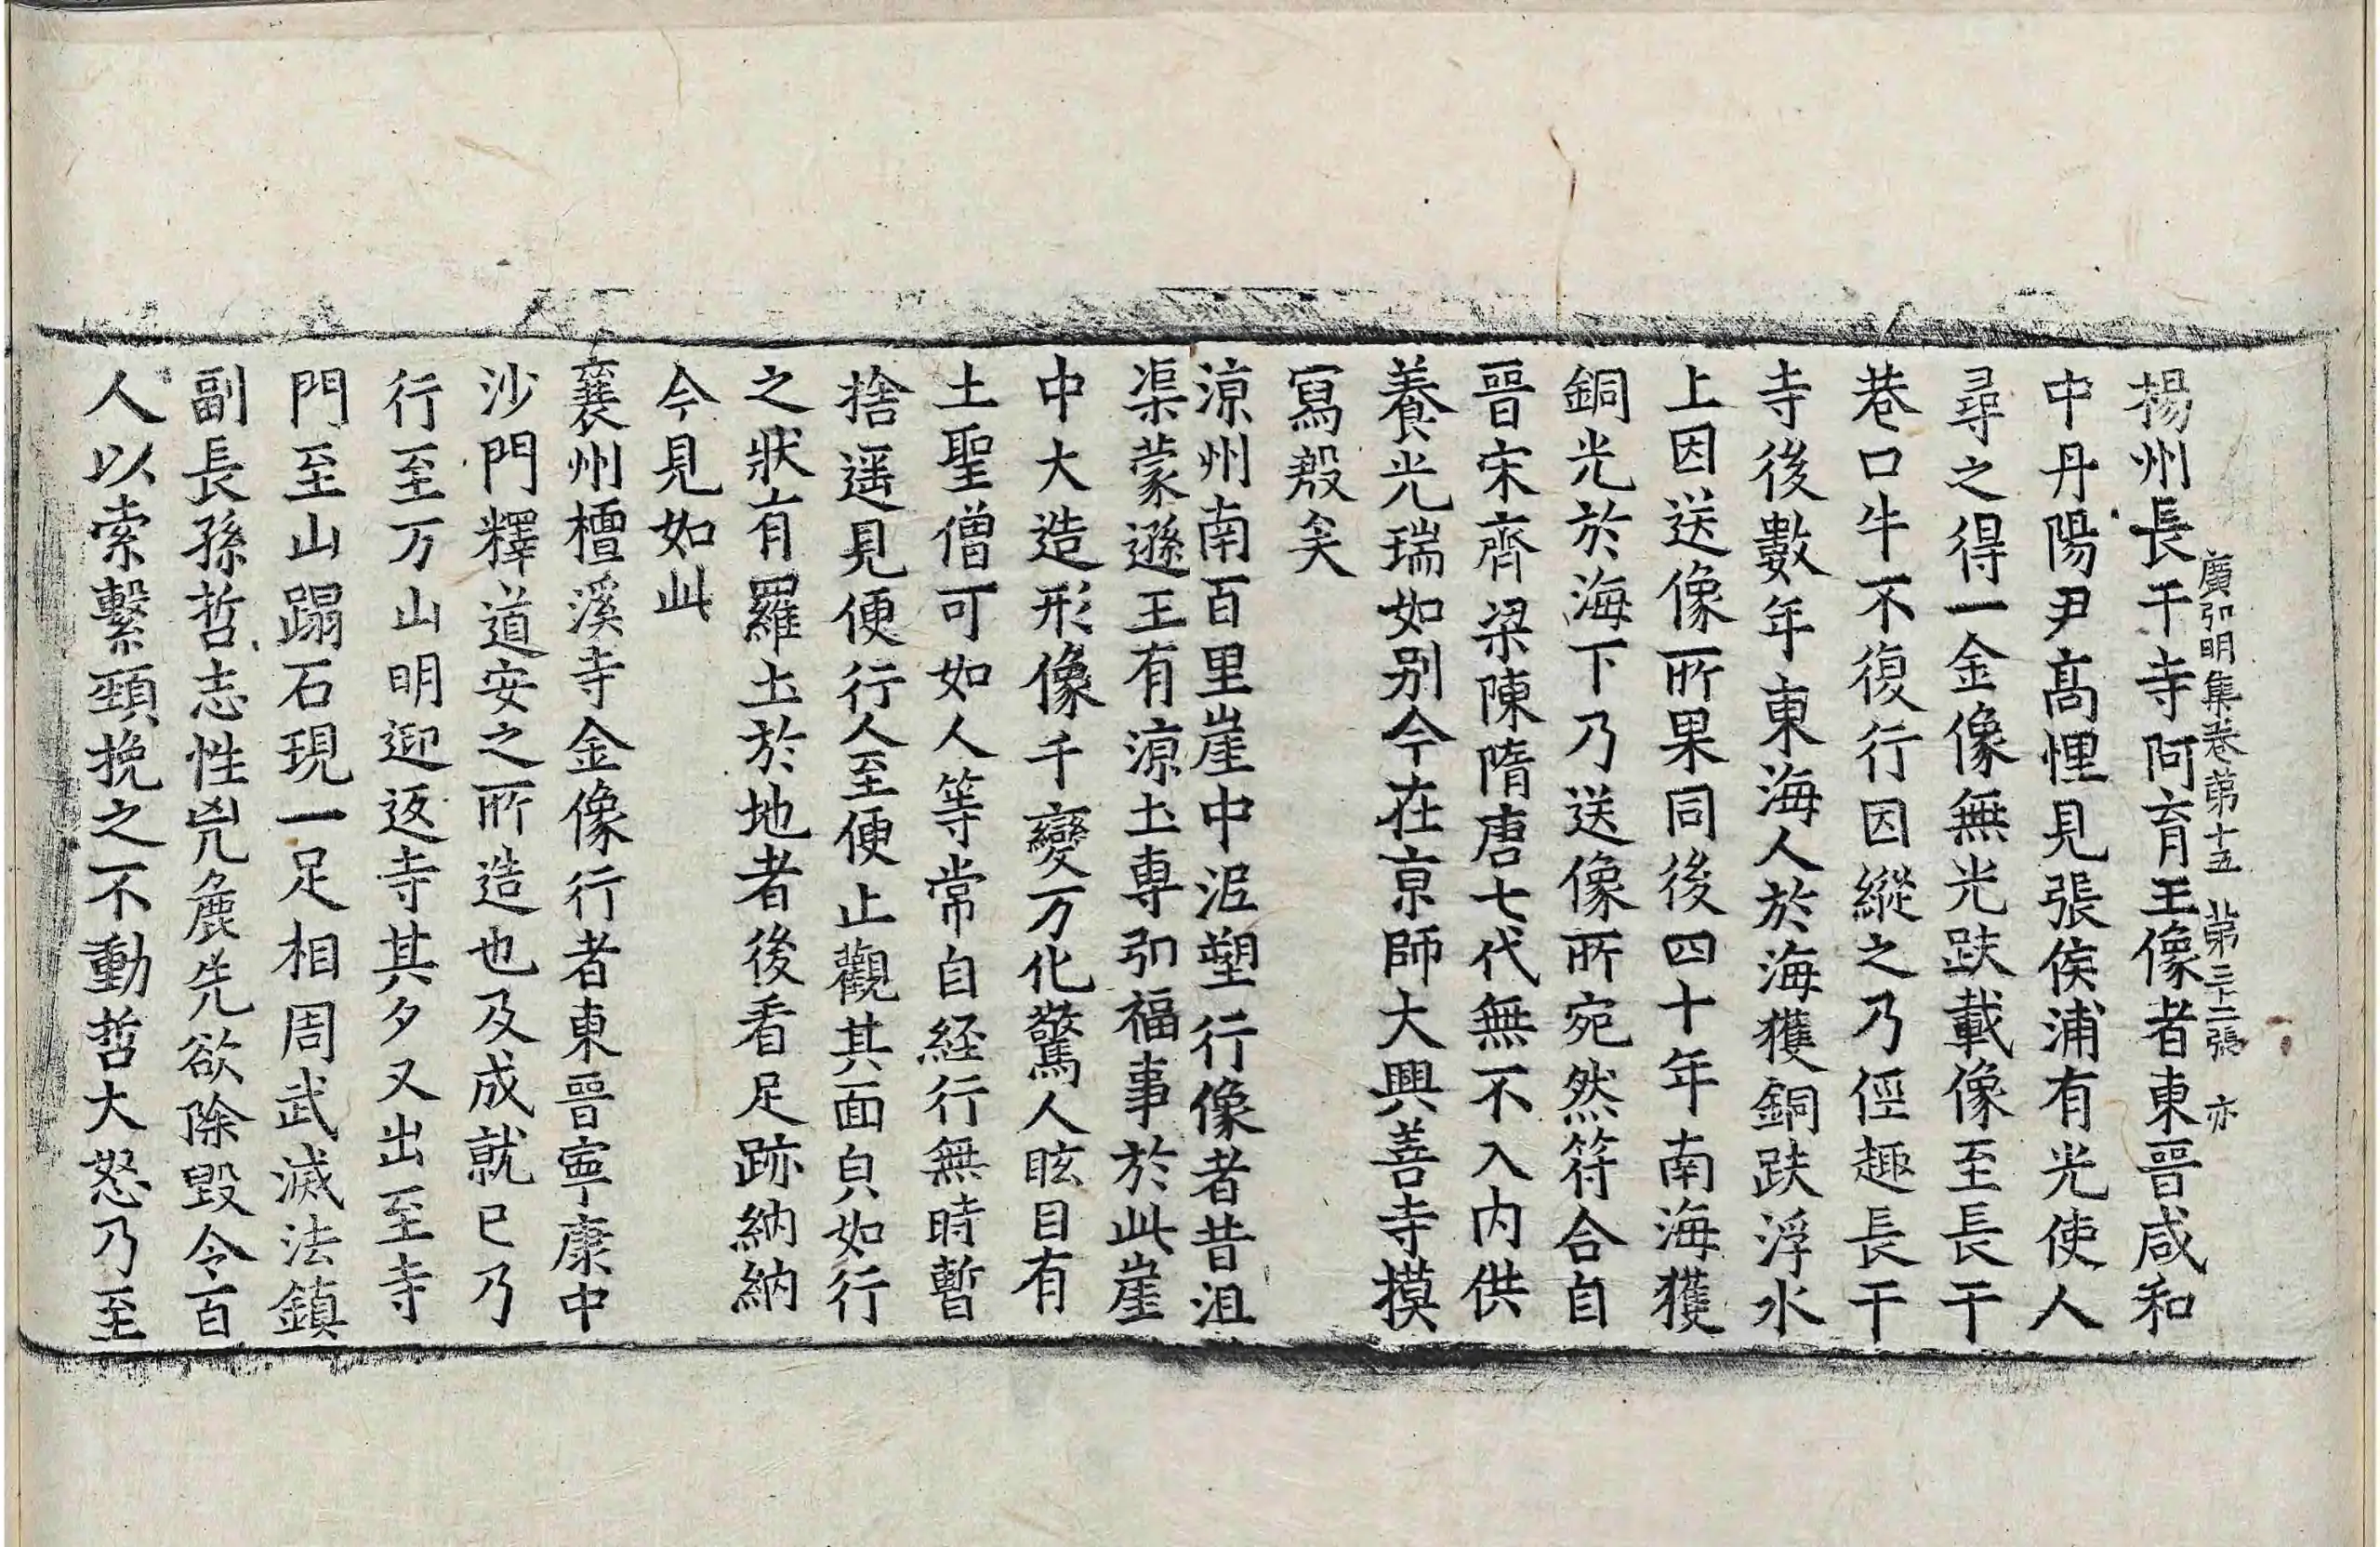 廣弘明集卷第十五 第三十二張 亦
揚州長干寺阿育王像者東晉咸和
中丹陽尹髙悝見張侯浦有光使人
尋之得一金像無光趺載像至長干
巷口牛不復行因縱之乃徑趣長干
寺後數年東海人於海獲銅趺浮水
上因送像所果同後四十年南海獲
銅光於海下乃送像所宛然符合自
晉宋齊梁陳隋唐七代無不入内供
養光瑞如别今在京師大興善寺摸
寫殷矣
涼州南百里崖中泥塑行像者昔沮
渠蒙遜王有涼土專弘福事於此崖
中大造形像千變万化驚人眩目有
土聖僧可如人等常自経行無時暫
捨遥見便行人至便止觀其面皃如行
之狀有羅土於地者後看足跡納納
今見如此
襄州檀溪寺金像行者東晉寧康中
沙門釋道安之所造也及成就已乃
行至万山明迎返寺其夕又出至寺
門至山蹋石現一足相周武滅法鎮
副長孫哲志性兇麁先欲除毀令百
人以索繫頸挽之不動哲大怒乃至